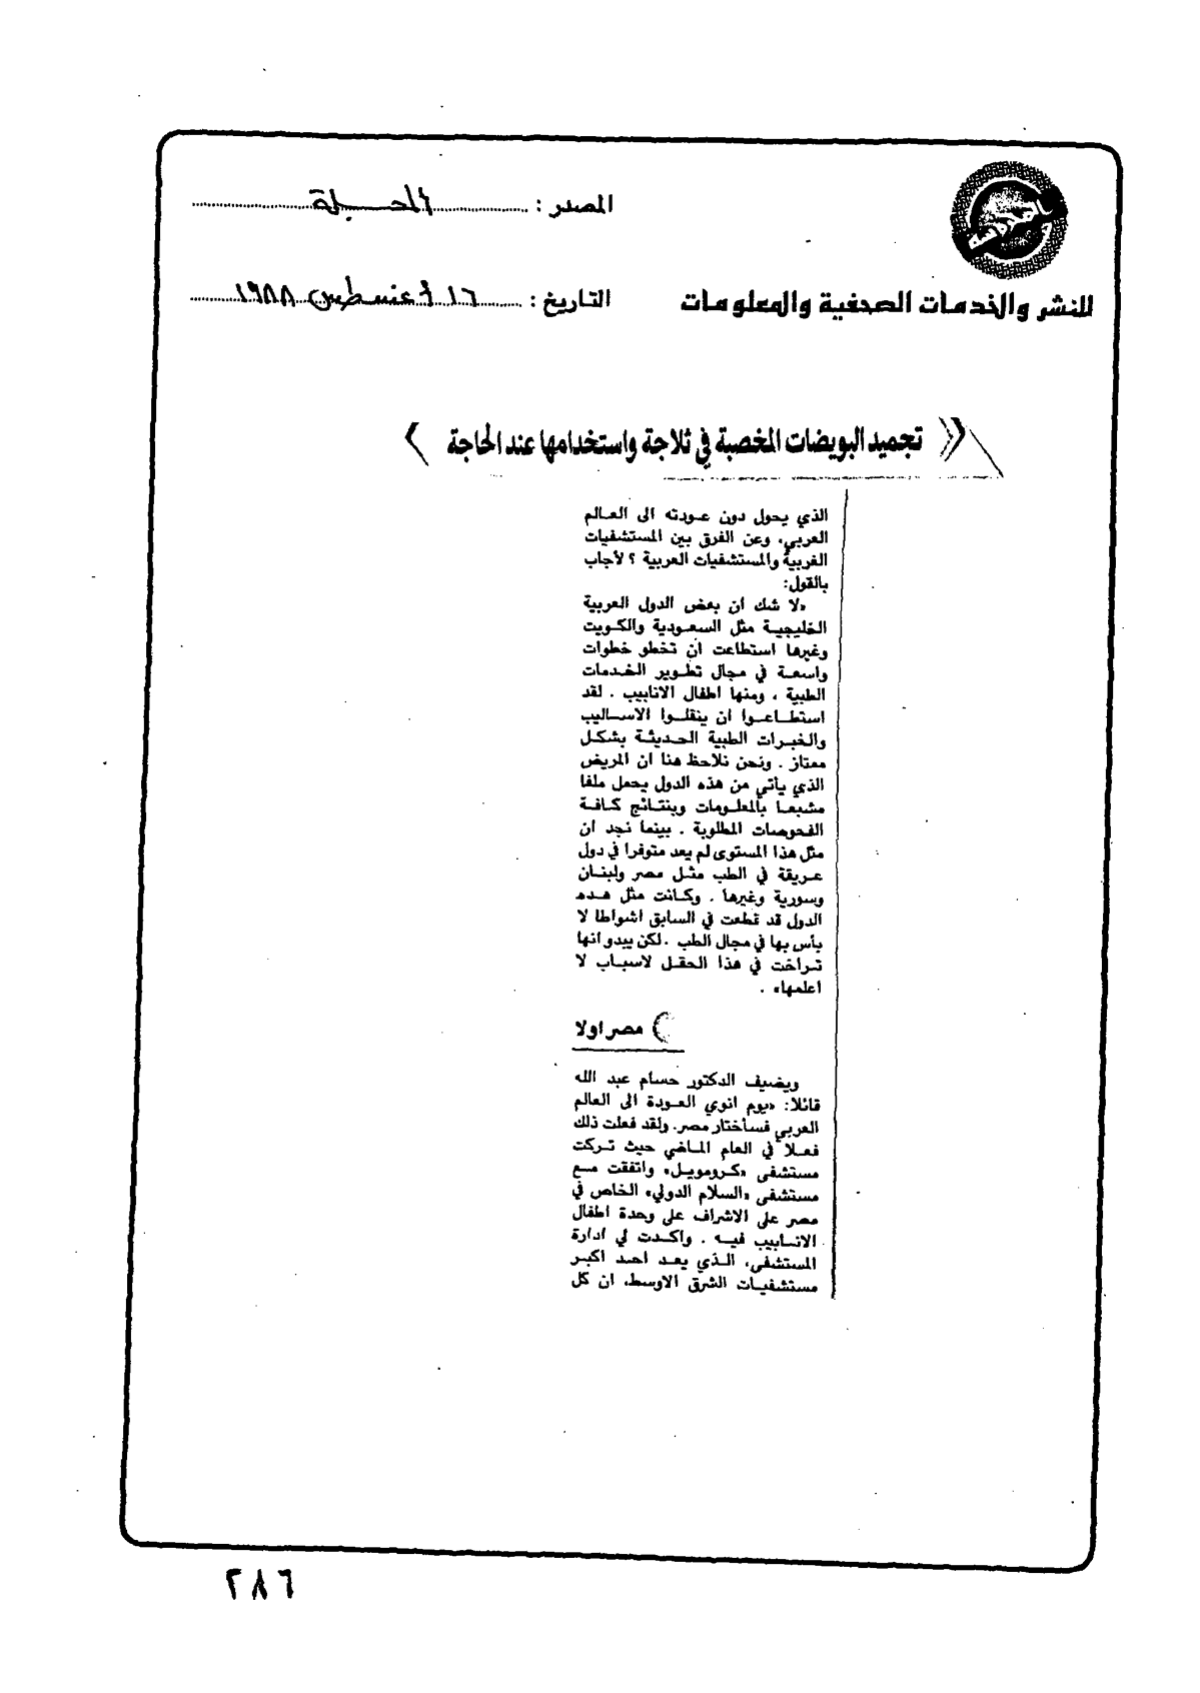 المصدر : المجلة
للنشر والخدمات الصحفية والمعلومات
التاريخ : ١٦ أغسطس ١٩٨٨
تجميد البويضات المخصبة في ثلاجة واستخدامها عند الحاجة
الذي يحول دون عودته الى العالم
العربي، وعن الفرق بين المستشفيات
الغربية والمستشفيات العربية ؟ لأجاب
بالقول:
«لا شك ان بعض الدول العربية
الخليجية مثل السعودية والكويت
وغيرها استطاعت ان تخطو خطوات
واسعة في مجال تطوير الخدمات
الطبية ، ومنها اطفال الانابيب . لقد
استطاعوا ان ينقلوا الاساليب
والخبرات الطبية الحديثة بشكل
ممتاز . ونحن نلاحظ هنا ان المريض
الذي يأتي من هذه الدول يحمل ملفا
مشبعا بالمعلومات وبنتائج كافة
الفحوصات المطلوبة . بينما نجد ان
مثل هذا المستوى لم يعد متوفرا في دول
عريقة في الطب مثل مصر ولبنان
وسورية وغيرها . وكانت مثل هده
الدول قد قطعت في السابق اشواطا لا
بأس بها في مجال الطب . لكن يبدو انها
تراخت في هذا الحقل لاسباب لا
اعلمها» .
مصر اولا
ويضيف الدكتور حسام عبد الله
قائلا: «يوم انوي العودة الى العالم
العربي فسأختار مصر. ولقد فعلت ذلك
فعلا في العام الماضي حيث تركت
مستشفى «كرومويل» واتفقت مع
مستشفى «السلام الدولي» الخاص في
مصر على الاشراف على وحدة اطفال
الانابيب فيه . واكدت لي ادارة
المستشفى، الذي يعد احد اكبر
مستشفيات الشرق الاوسط، ان كل
٢٨٦